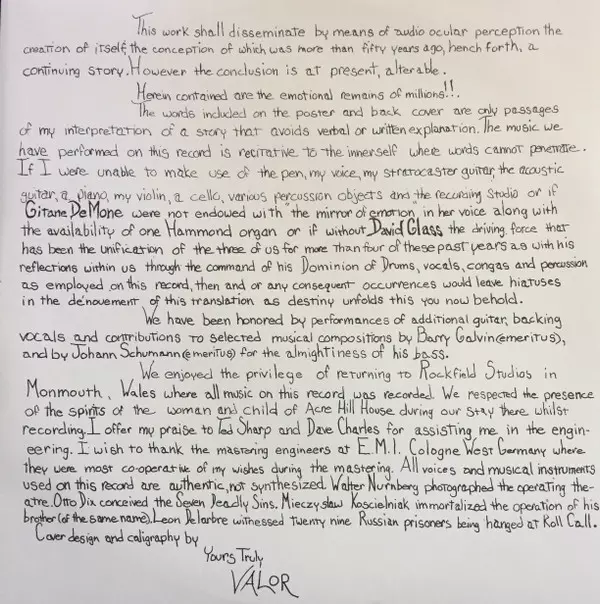 This work shall disseminate by means of audio ocular perception the
creation of itself, the conception of which was more than fifty years ago, hench forth, a
continuing story. However the conclusion is at present, alterable.
Herein contained are the emotional remains of millions!!.
The words included on the poster and back cover are only passages
of my interpretation of a story that avoids verbal or written explanation. The music we
have performed on this record is recitative to the innerself where words cannot penetrate.
If I were unable to make use of the pen, my voice, my stratocaster guitar, the acoustic
guitar, a piano, my violin, a cello, various percussion objects and the recording studio or if
Gitane DeMone were not endowed with "the mirror of emotion" in her voice along with
the availability of one Hammond organ or if without David Glass the driving force that
has been the unification of the three of us for more than four of these past years as with his
reflections within us through the command of his Dominion of Drums, vocals, congas and percussion
as employed on this record, then and or any consequent occurrences would leave hiatuses
in the dénouement of this translation as destiny unfolds this you now behold.
We have been honored by performances of additional guitar, backing
vocals and contributions to selected musical compositions by Barry Galvin (emeritus),
and by Johann Schumann (emeritus) for the almightiness of his bass.
We enjoyed the privilege of returning to Rockfield Studios in
Monmouth, Wales where all music on this record was recorded. We respected the presence
of the spirits of the woman and child of Acre Hill House during our stay there whilst
recording. I offer my praise to Ted Sharp and Dave Charles for assisting me in the engin-
eering. I wish to thank the mastering engineers at E.M.I. Cologne West Germany where
they were most co-operative of my wishes during the mastering. All voices and musical instruments
used on this record are authentic, not synthesized. Walter Nurnberg photographed the operating the-
atre. Otto Dix conceived the Seven Deadly Sins. Mieczyslaw Koscielniak immortalized the operation of his
brother (of the same name). Leon Delarbre witnessed twenty nine Russian prisoners being hanged at Roll Call.
Cover design and caligraphy by
Yours Truly
VALOR